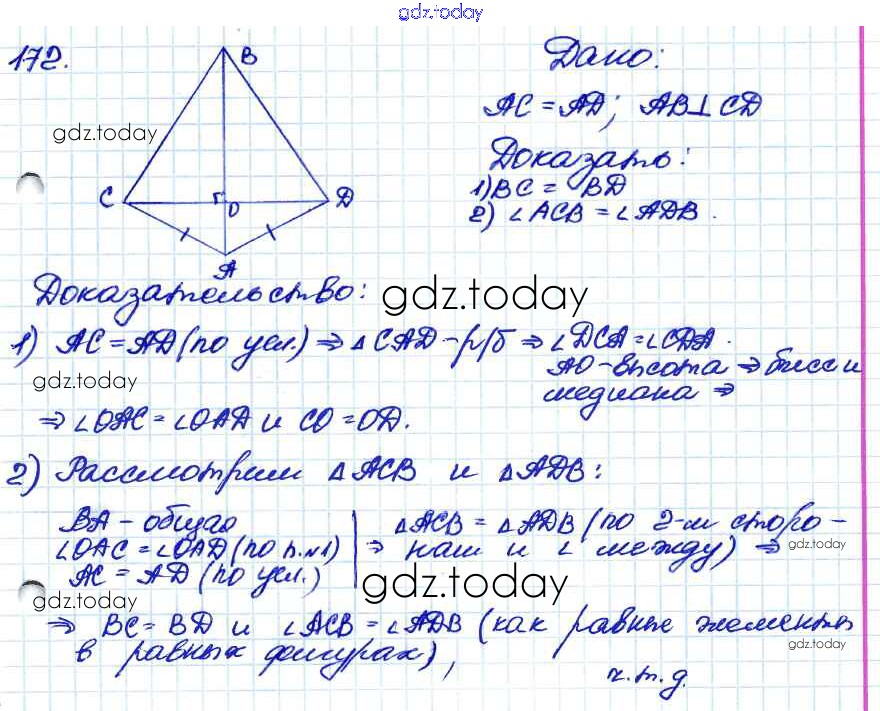 gdz.today
172.
B
Дано:
AC = AD; AB⊥CD
gdz.today
Доказать:
1) BC = BD
2) ∠ACB = ∠ADB.
C
O
D
A
Доказательство:
gdz.today
1) AC = AD (по усл.) ⇒ △CAD - р/б ⇒ ∠DCA = ∠CDA.
AO - высота ⇒ бисс и
медиана ⇒
gdz.today
⇒ ∠OAC = ∠OAD и CO = OD.
2) Рассмотрим △ACB и △ADB:
BA - общая
∠OAC = ∠OAD (по п.№1)
AC = AD (по усл.)
⇒ △ACB = △ADB (по 2-м сторо-
нам и ∠ между) ⇒
gdz.today
gdz.today
gdz.today
⇒ BC = BD и ∠ACB = ∠ADB (как равные элементы
в равных фигурах),
gdz.today
ч.т.д.